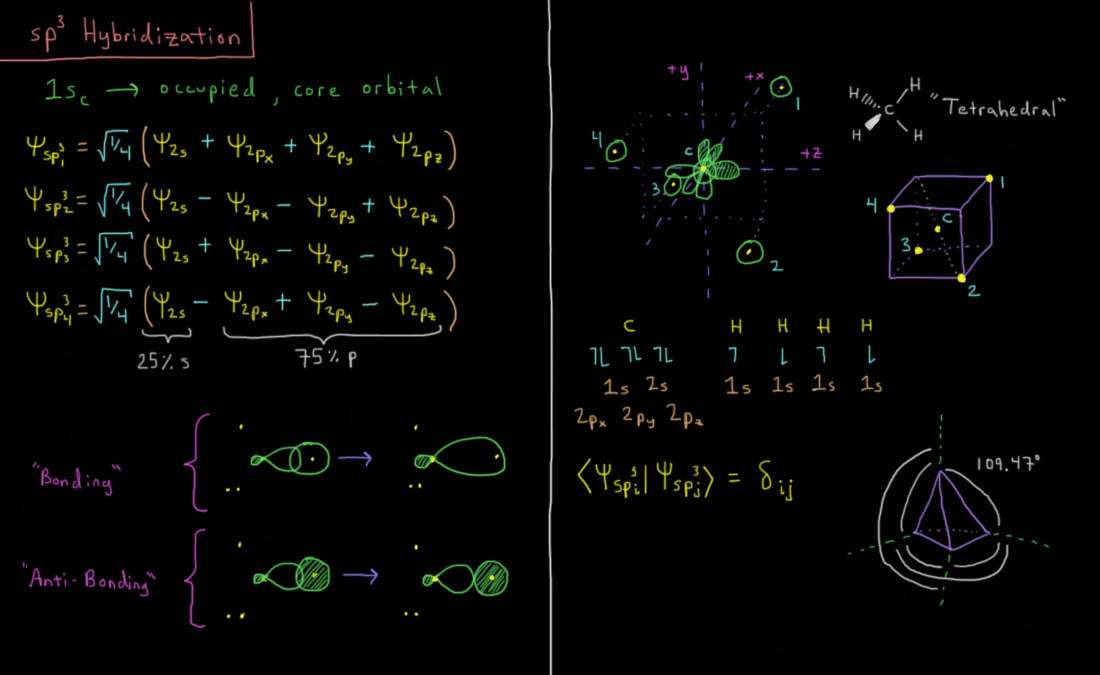 sp³ Hybridization
1s_C → occupied, core orbital
Ψ_sp³₁ = √1/4 (Ψ_2s + Ψ_2px + Ψ_2py + Ψ_2pz)
Ψ_sp³₂ = √1/4 (Ψ_2s − Ψ_2px − Ψ_2py + Ψ_2pz)
Ψ_sp³₃ = √1/4 (Ψ_2s + Ψ_2px − Ψ_2py − Ψ_2pz)
Ψ_sp³₄ = √1/4 (Ψ_2s − Ψ_2px + Ψ_2py − Ψ_2pz)
25% s 75% p
"Bonding"
"Anti-Bonding"
+y +x
1
4 C +z
3
2
H H
C "Tetrahedral"
H H
1
4 C
3
2
C H H H H
1s 2s 1s 1s 1s 1s
2px 2py 2pz
⟨Ψ_sp³i|Ψ_sp³j⟩ = δ_ij
109.47°